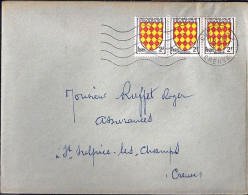 2F 2F 2F
CREUSE
Monsieur Ruffet Roger
Assurances
à St Sulpice-les-Champs
Creuse